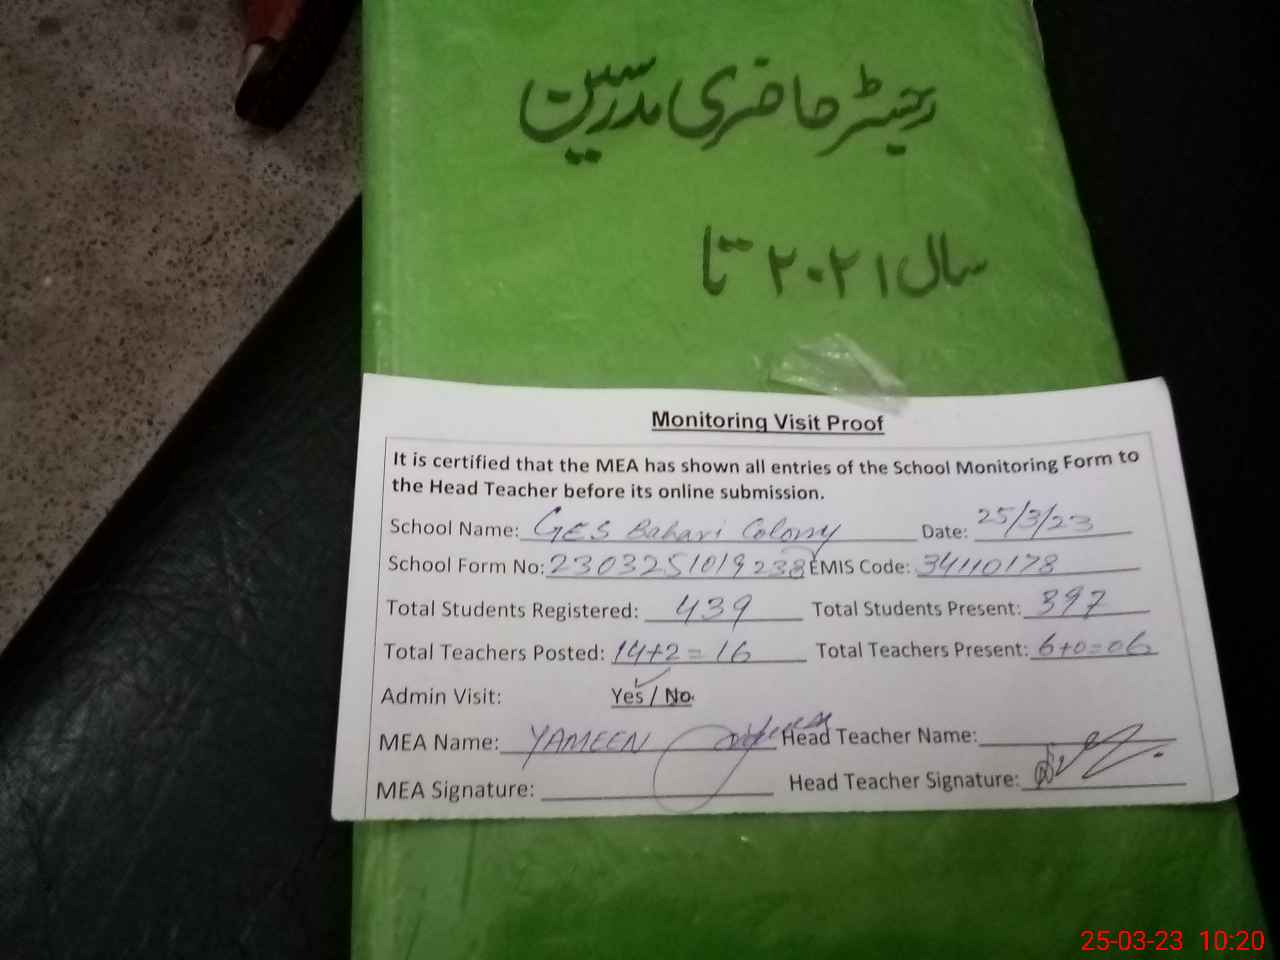 رجسٹر حاضری مدرسین
سال ۲۰۲۱ تا
Monitoring Visit Proof
It is certified that the MEA has shown all entries of the School Monitoring Form to
the Head Teacher before its online submission.
School Name: GES Bahari Colony Date: 25/3/23
School Form No: 2303251019238 EMIS Code: 34110178
Total Students Registered: 439 Total Students Present: 397
Total Teachers Posted: 14+2=16 Total Teachers Present: 6+0=06
Admin Visit: Yes / No
MEA Name: YAMEEN Head Teacher Name:
MEA Signature: Head Teacher Signature:
25-03-23 10:20